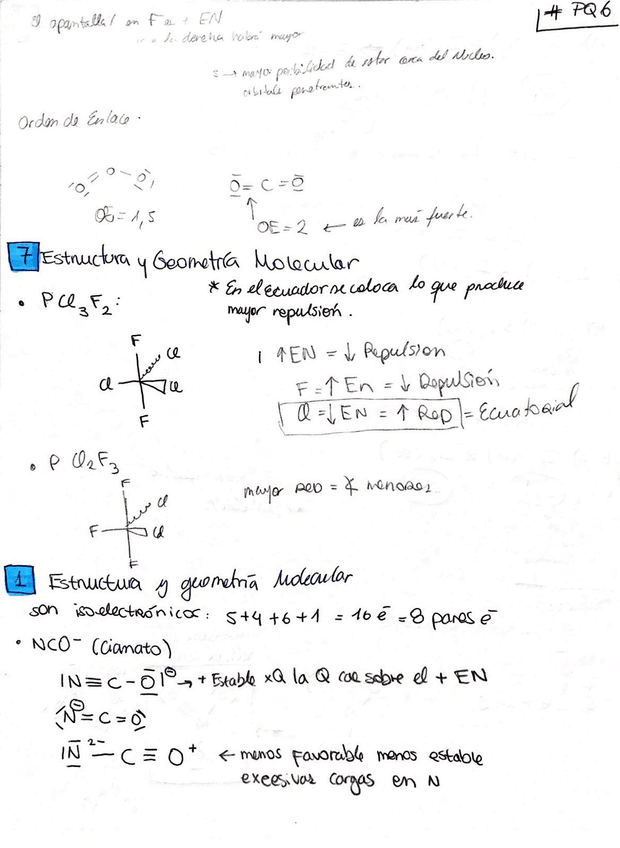 # PQ6
apantalla/ en F es + EN
a la derecha habrá mayor
s → mayor posibilidad de estar cerca del Núcleo.
orbitales penetrantes.
Orden de Enlace.
O O O
O = C = O
OE = 1,5
OE = 2 ← es la más fuerte.
7 Estructura y Geometría Molecular
* En el ecuador se coloca lo que produce
mayor repulsión.
• PCl3F2:
F
Cl
Cl Cl
F
↑EN = ↓ Repulsion
F = ↑ En = ↓ Repulsión
Cl = ↓ EN = ↑ Rep = Ecuatorial
• P Cl2F3
F
Cl
F Cl
F
mayor REP = ∡ menores
1 Estructura y geometría Molecular
son isoelectrónicos: 5+4+6+1 = 16 e̅ = 8 pares e̅
• NCO⁻ (Cianato)
|N≡C-O̲̅|⊖ → + Estable xQ la Q cae sobre el + EN
N⊖=C=O
|N̲̅ ²⁻— C ≡ O⁺ ← menos favorable menos estable
excesivas cargas en N